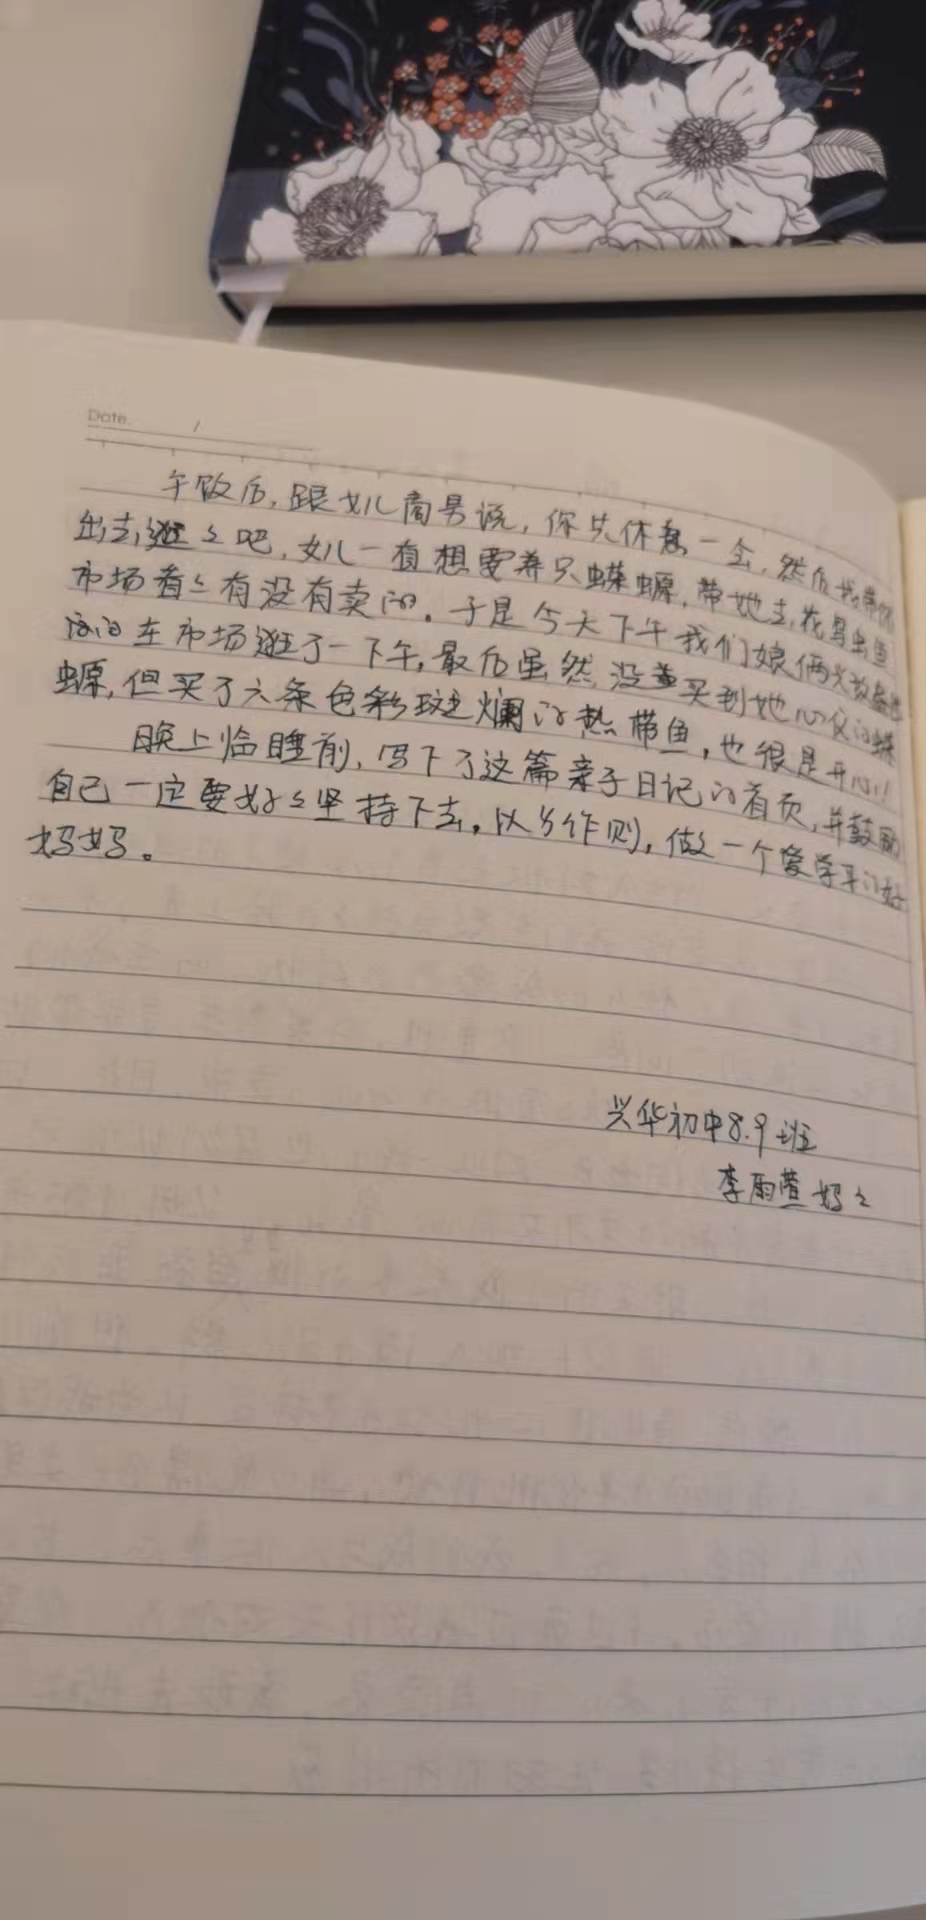 Date. /
午饭后，跟女儿商号说，你先休息一会，然后我带你
出去逛々吧，女儿一直想要养只蝾螈，带她去花鸟虫鱼
市场看々有没有卖的。于是今天下午我们娘俩
在市场逛了一下午，最后虽然没买到她心仪的蝾
螈，但买了六条色彩斑斓的热带鱼，也很是开心！
晚上临睡前，写下了这篇亲子日记的首页，并鼓励
自己一定要好々坚持下去，以身作则，做一个爱学习的好
妈妈。
兴华初中8.9班
李雨萱妈々